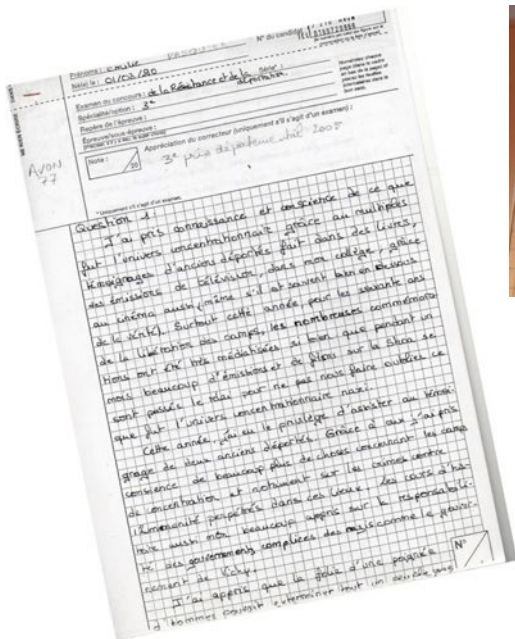 Prénoms: Emilie
N° du candidat
Né(e) le: 01/03/90
Examen ou concours: de la Résistance et de la déportation. Série*:
Spécialité/option: 3e
Repère de l'épreuve:
Epreuve/sous-épreuve:
AVON
77
Note:
20
Appréciation du correcteur (uniquement s'il s'agit d'un examen):
3e prix départemental 2005
* Uniquement s'il s'agit d'un examen.
Question 1:
J'ai pris connaissance et conscience de ce que
fut l'univers concentrationnaire grâce au multiples
témoignages d'anciens déportés fait dans des livres,
des émissions de télévision, dans mon collège, grâce
au cinéma aussi, (même s'il est souvent bien en dessous
de la vérité). Surtout cette année, pour les soixante ans
de la libération des camps, les nombreuses commémora-
tions ont été très médiatisées si bien que pendant un
mois beaucoup d'émissions et de films sur la Shoa se
sont passés le relai pour ne pas nous faire oublier ce
que fut l'univers concentrationnaire nazi.
Cette année, j'ai eu le privilège d'assister au témoi-
gnage de deux anciens déportés. Grâce à eux j'ai pris
conscience de beaucoup plus de choses concernant les camps
de concentration et notament sur les crimes contre
l'Humanité perpétrés dans ces lieux. Les cours d'his-
toire aussi m'en beaucoup appris sur la responsabili-
té des gouvernements complices des nazis comme le gouver-
nement de Vichy.
J'ai appris que la folie d'une poignée
d'hommes pouvait exterminer tout un
N°